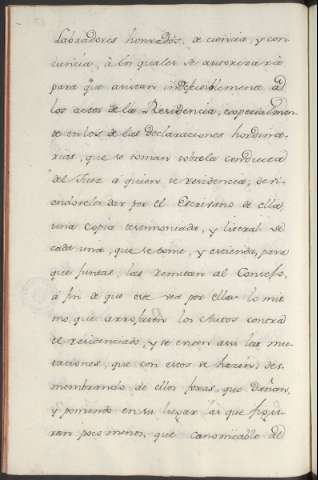 Labradores honrados, de ciencia, y con
ciencia, à los quales se autorizaria
para que asistan indefectiblemente à
los actos de la Residencia, especialmen
te en los de las declaraciones
que se toman sobre la conducta
del Juez à quien se residencia, de
dar por el Escrivano de ella,
una copia testimoniada, y literal de
cada una, que se tome, y extienda, para
que juntas, las remitan al Consejo,
à fin de que este vea por ellas lo mis
mo que arrojaren los Autos contra
el residenciado, y se eviten asi las mu
taciones, que con estos se hacen, des
membrando de ellos foxas, que dañan,
y poniendo en su lugar las que
ran poco menos, que canonizable de